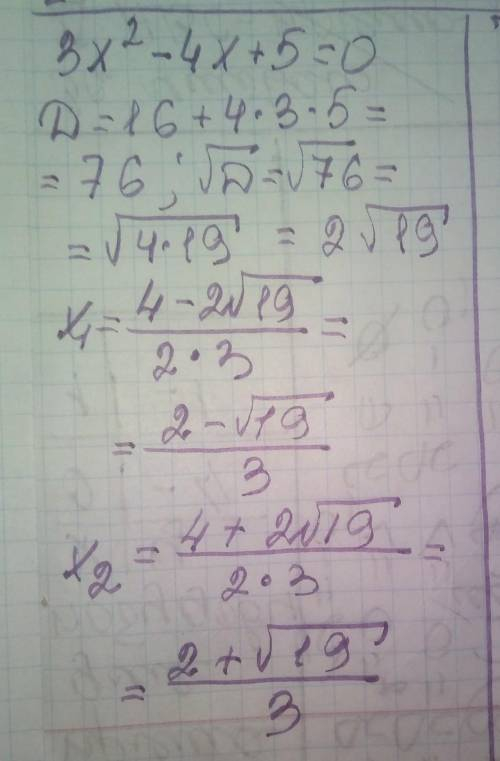 3x² - 4x + 5 = 0
D = 16 + 4·3·5 =
= 76 ; √D = √76 =
= √4·19 = 2√19
x₁ = (4 - 2√19)/(2·3) =
= (2 - √19)/3
x₂ = (4 + 2√19)/(2·3) =
= (2 + √19)/3